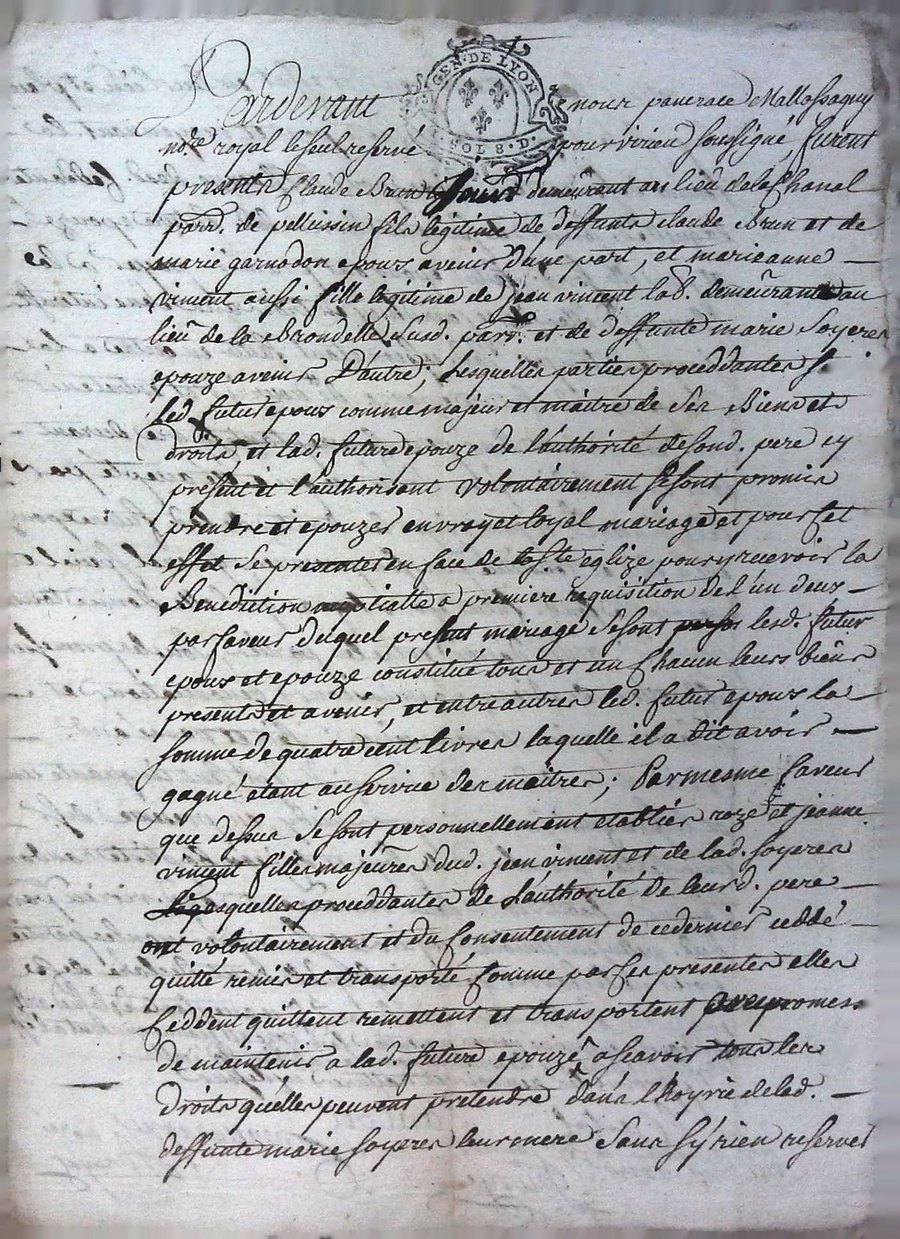 GEN. DE LYON
SOLS. D.
Pardevant nous pancrace Mallassagny
nore. royal le seul reservé pour virieu soussigné, furent
presents Claude Brun demeurant au lieu de la Chanal
parr. de pellissin fils legitime de deffunts claude Brun et de
marie garnodon epoux avenir d'une part, et marieanne
vincent aussi fille legitime de jean vincent lab. demeurant au
lieu de la Brondelle susd. parr. et de deffunte marie Soyeres
epouze avenir D'autre; Lesquelles parties proceddantes S.
led. futur epoux comme majeur et maitre de Ses Biens et
droits, et lad. future epouze de l'authorité de sond. pere cy
present et l'authorisant volontairement se sont promis
prendre et epouzer en vray et loyal mariage et pour Cet
effet se presenter en face de Ste eglize pour y recevoir la
Benediction nuptialle a premiere requisition de l'un deux
par faveur Duquel present mariage se sont lesd. futur
epoux et epouze constitué tous et un Chacun leurs biens
presents et avenir, et entre autres led. futur epoux la
somme de quatre cent livres laquelle il a dit avoir
gagné etant au service des maitres; Par mesme faveur
que dessus se sont personnellement etablies roze et jeanne
vincent filles majeures dud. jean vincent et de lad. soyeres
Lesquelles proceddantes de L'authorité de leurd. pere
ont volontairement et du Consentement de ce dernier ceddé
quitté remis et transporté Comme par Ces presentes elles
Ceddent quittent remettent et transportent avec promess
de maintenir a lad. future epouze, ascavoir tous les
droits qu'elles peuvent pretendre dans l'hoyrie de lad.
deffunte marie soyeres leur mere sans s'y rien reserver